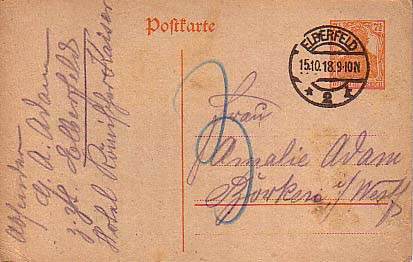 Postkarte
ELBERFELD
15.10.18.9-10N
* 2 *
7½
Absender
G. A. Adam
z. Zt. Elberfeld
Hotel Römischer Kaiser
Frau
Amalie Adam
Borken i/Westf